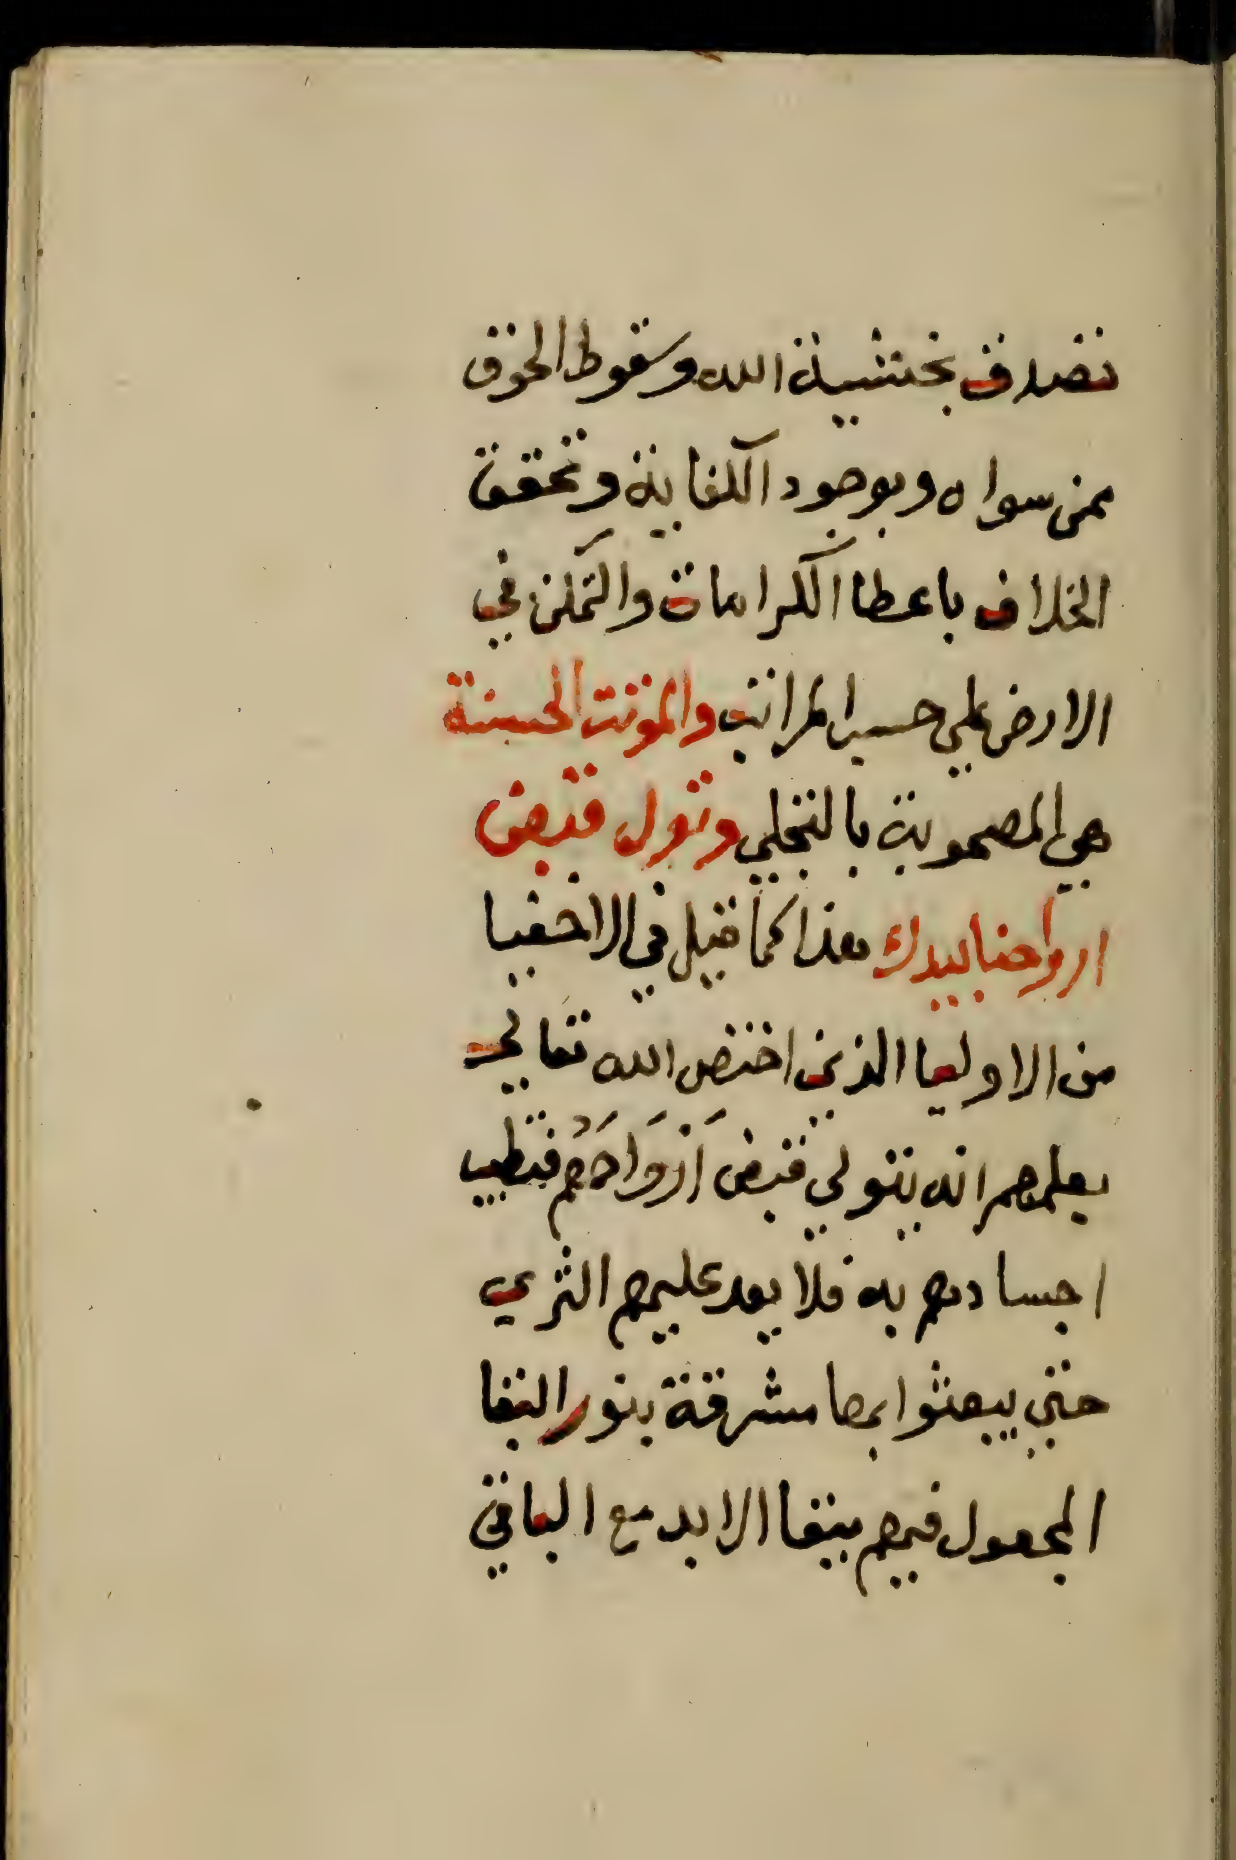 نصداق بخشية الله وسقوط الخوف
ممن سواه وبوجود الكفاية وتحقق
الخلاف باعطا الكرامات والتمكن في
الارض علي حسب المراتب والموتت الحسنة
هي المصحوبة بالتجلي وتول قبض
ارواحنا بيدك هذا كما قيل في الاخفيا
من الاوليا الذين اختص الله تعالي
بعلمهم انه يتولي قبض اَرْوَاحَهُم فتطيب
اجسادهم به فلا يعد عليهم الثري
حتي يبعثوا بها مشرقة بنور البقا
المجعول فيهم ببقا الابد مع الباقي